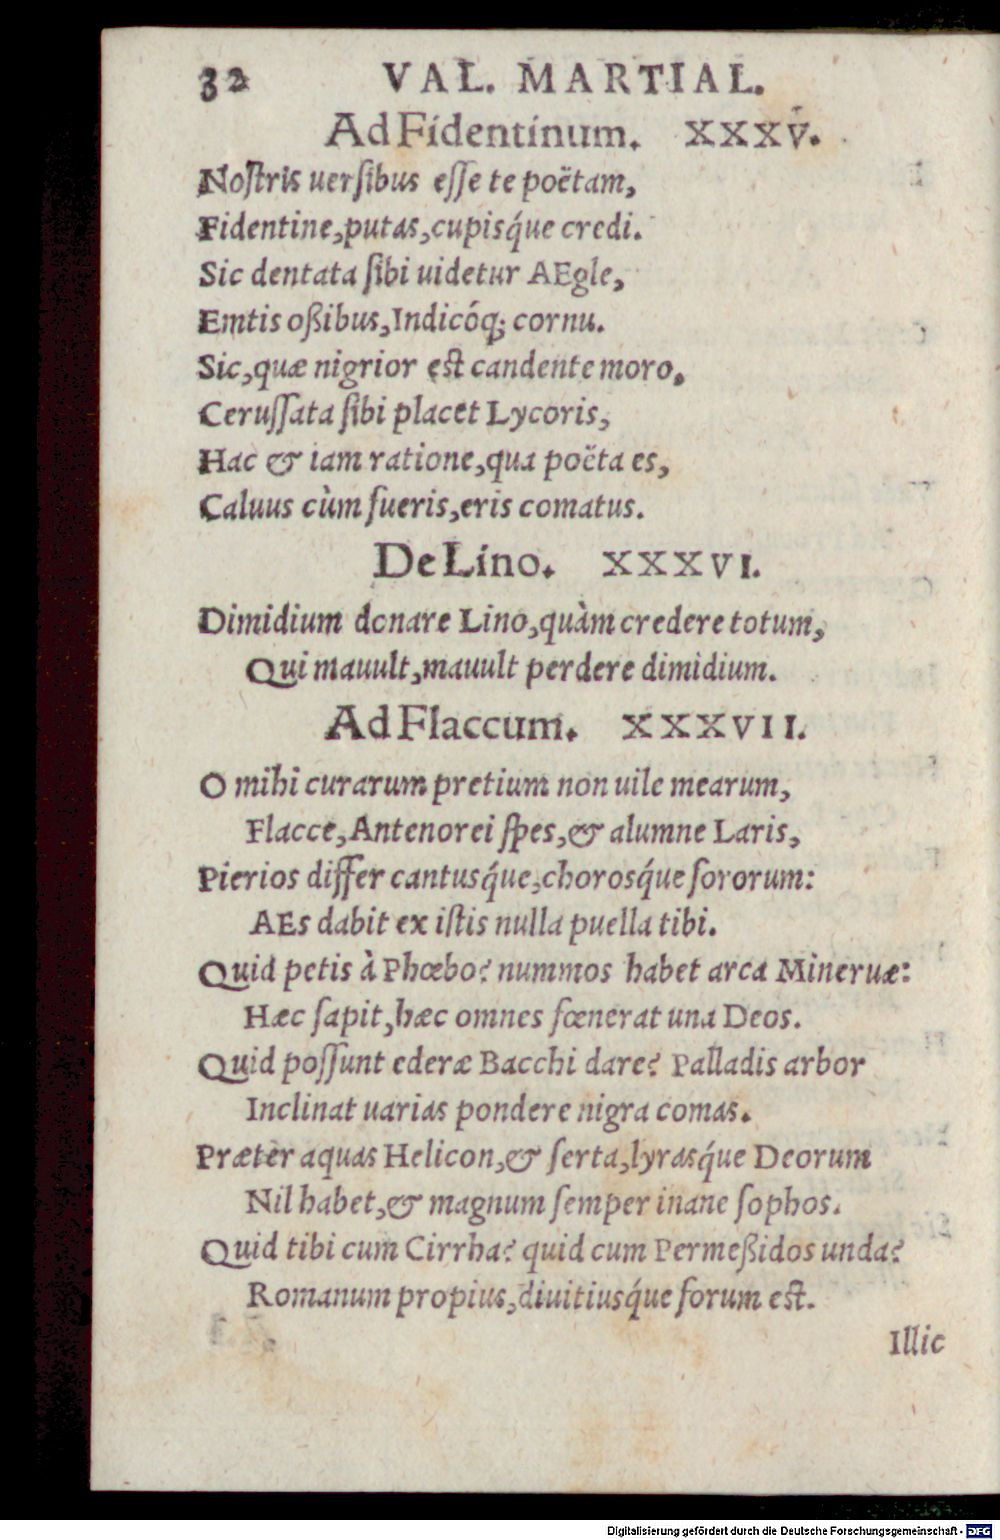 32 VAL. MARTIAL.
Ad Fidentinum. XXXV.
Noſtris uerſibus eſſe te poëtam,
Fidentine, putas, cupisq́ue credi.
Sic dentata ſibi uidetur AEgle,
Emtis oßibus, Indicóq; cornu.
Sic, quæ nigrior eſt candente moro,
Ceruſſata ſibi placet Lycoris,
Hac & iam ratione, qua poëta es,
Caluus cùm fueris, eris comatus.
De Lino. XXXVI.
Dimidium donare Lino, quàm credere totum,
Qui mauult, mauult perdere dimidium.
Ad Flaccum. XXXVII.
O mihi curarum pretium non uile mearum,
Flacce, Antenorei ſpes, & alumne Laris,
Pierios differ cantusq́ue, chorosq́ue ſororum:
AEs dabit ex iſtis nulla puella tibi.
Quid petis à Phœbo? nummos habet arca Mineruæ:
Hæc ſapit, hæc omnes fœnerat una Deos.
Quid poſſunt ederæ Bacchi dare? Palladis arbor
Inclinat uarias pondere nigra comas.
Præter aquas Helicon, & ſerta, lyrasq́ue Deorum
Nil habet, & magnum ſemper inane ſophos.
Quid tibi cum Cirrha? quid cum Permeßidos unda?
Romanum propius, diuitiusq́ue forum eſt.
Illic
Digitalisierung gefördert durch die Deutsche Forschungsgemeinschaft - DFG